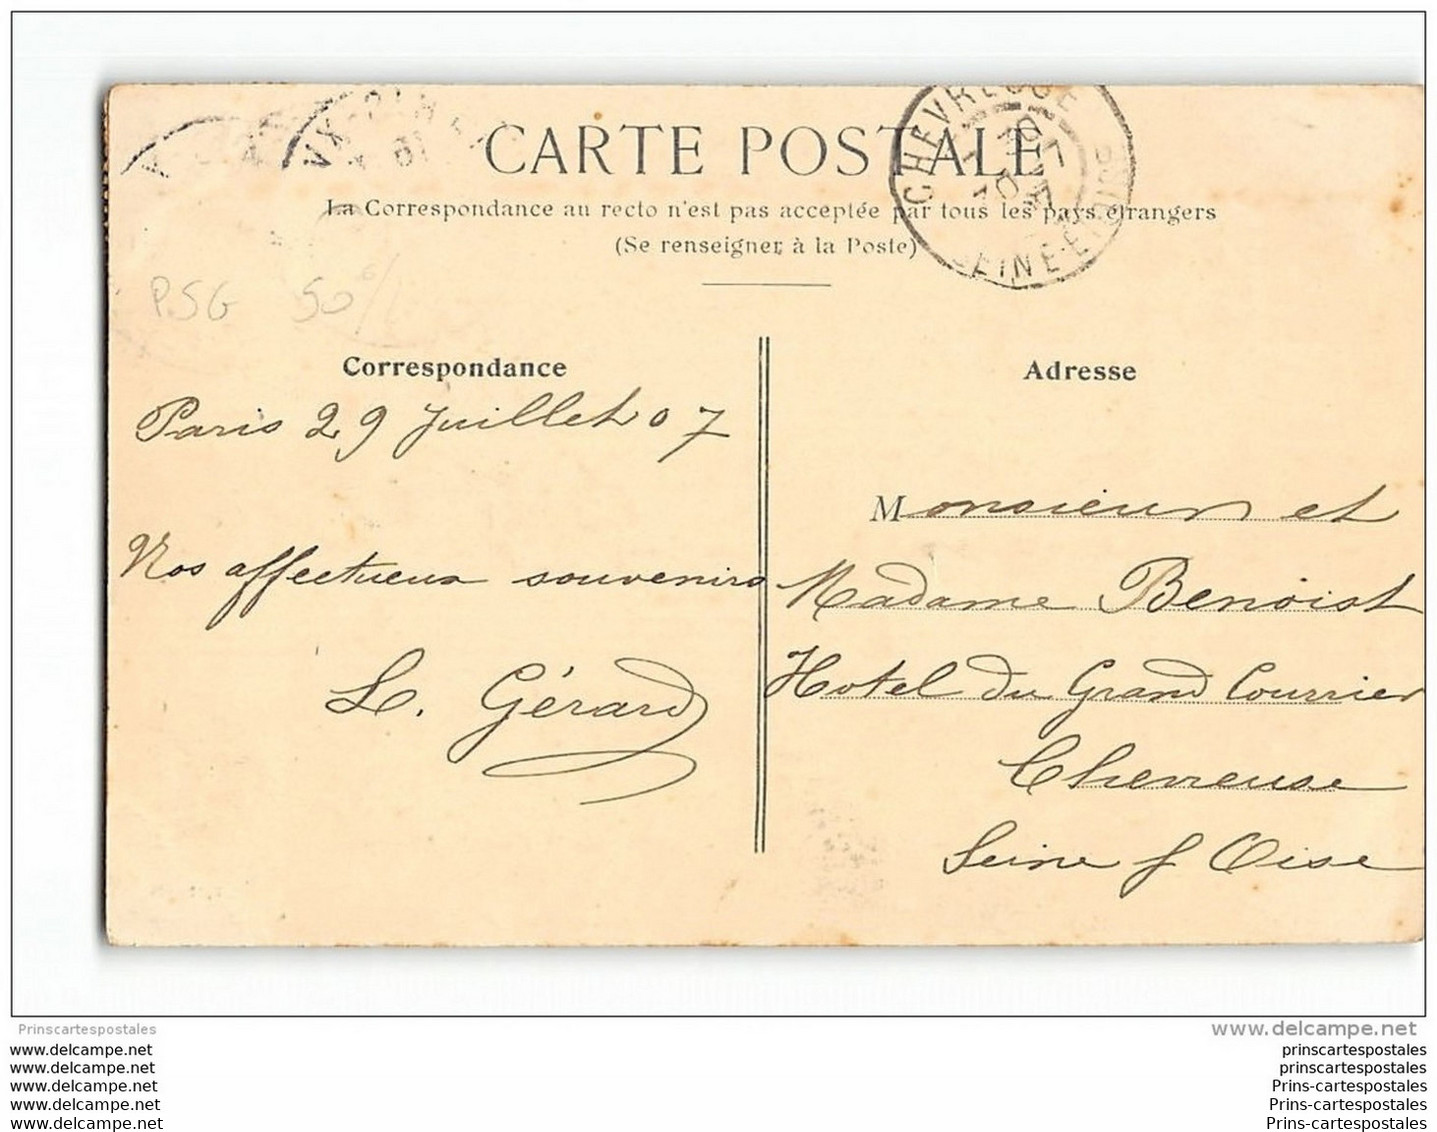 CARTE POSTALE
La Correspondance au recto n'est pas acceptée par tous les pays étrangers
(Se renseigner à la Poste)
CHEVREUSE
SEINE-ET-OISE
PSG 50
Correspondance
Paris 29 Juillet 07
Nos affectueux souvenirs
L. Gérard
Adresse
Monsieur et
Madame Benoist
Hotel du Grand Courrier
Chevreuse
Seine & Oise
Prinscartespostales
www.delcampe.net
www.delcampe.net
www.delcampe.net
www.delcampe.net
www.delcampe.net
www.delcampe.net
prinscartespostales
prinscartespostales
Prins-cartespostales
Prins-cartespostales
Prins-cartespostales